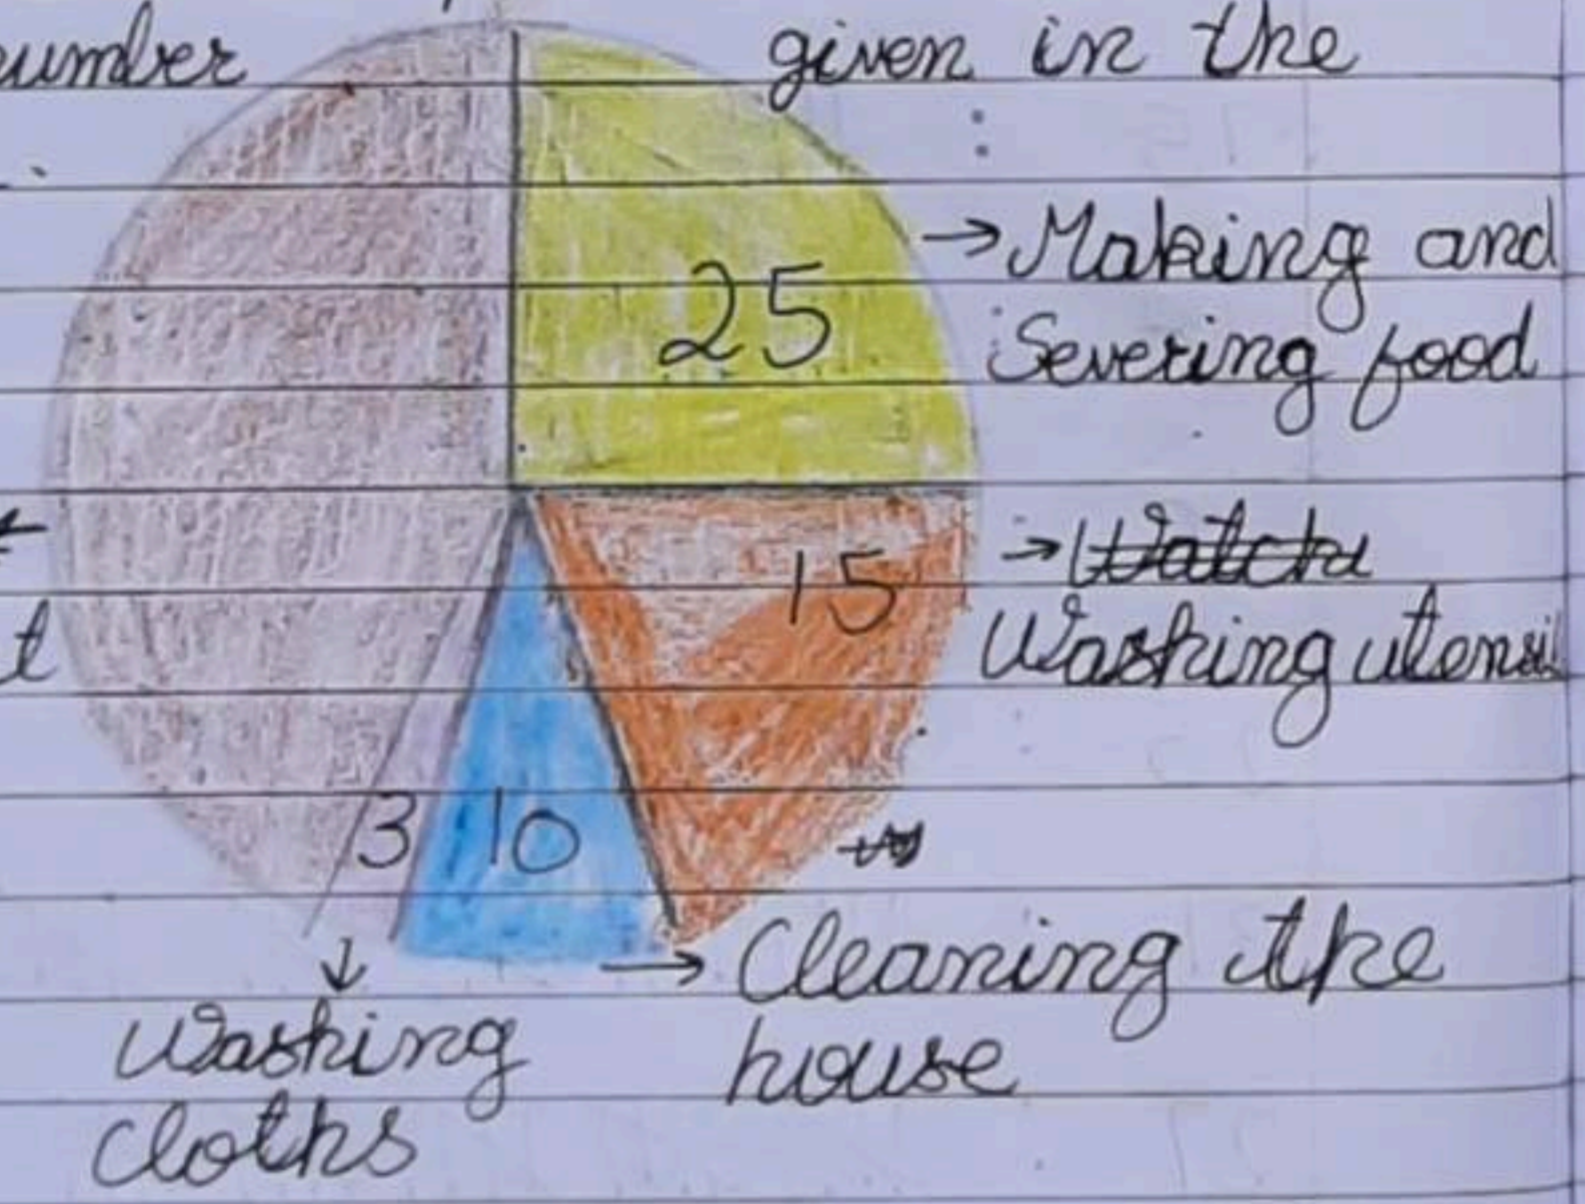 number
given in the
→ Making and
Severing food
25
→
Washing utensil
15
t
3 10
→ Cleaning the
house
↓
Washing
cloths